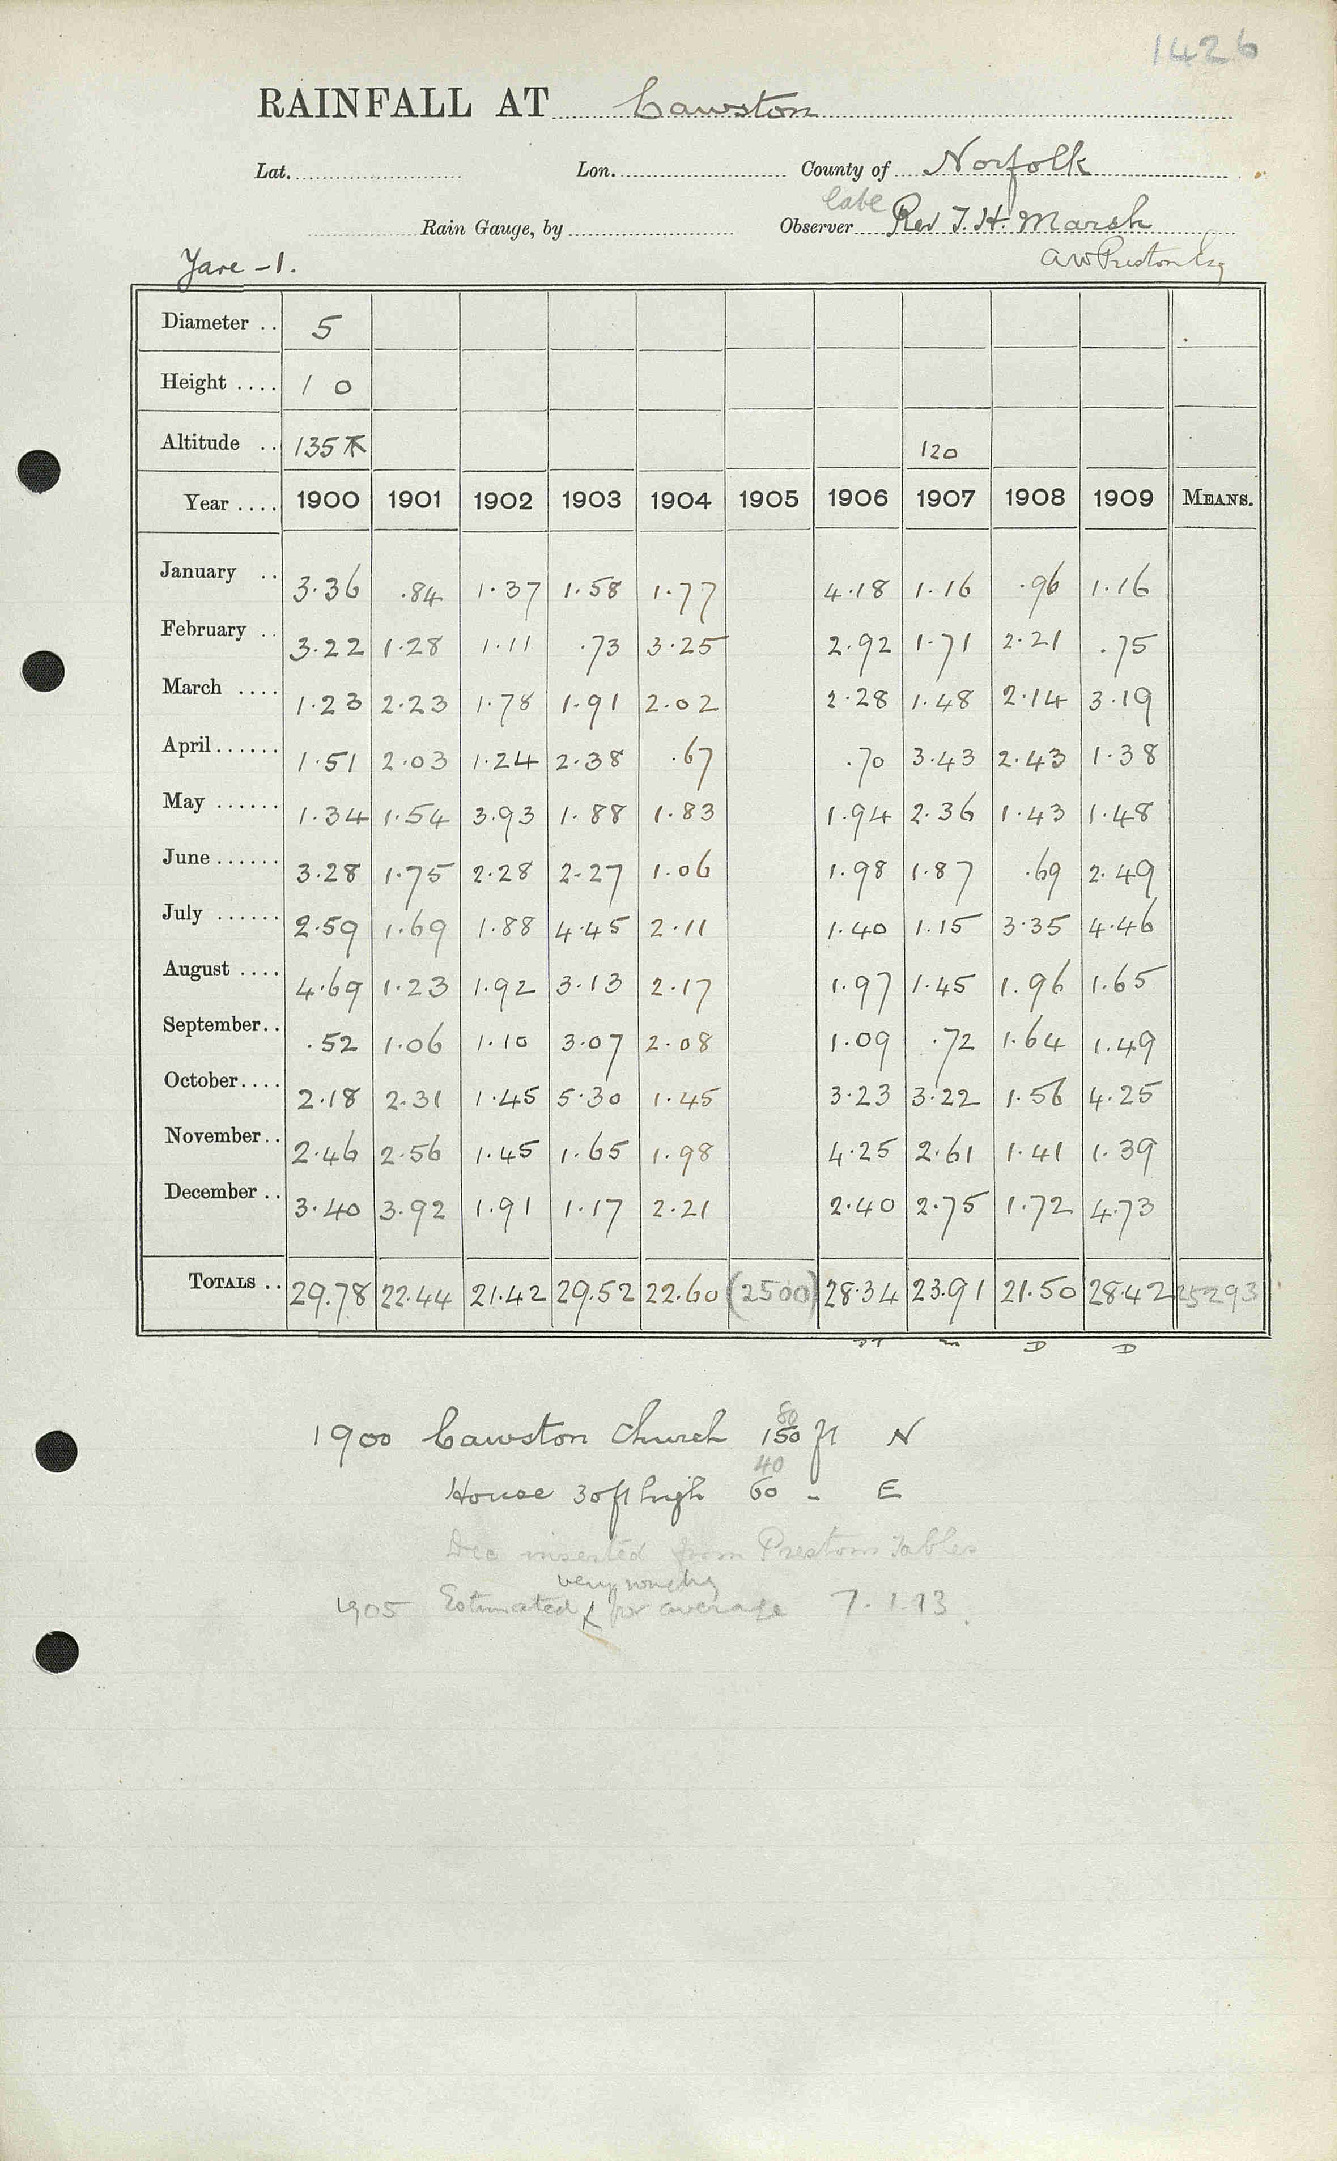 1426
RAINFALL AT Cawston
Lat. Lon. County of Norfolk
late
Rain Gauge, by Observer Rev T. H. Marsh
Yare -1. A W Preston Esq
Diameter .. 5
Height .... 1 0
Altitude .. 135 120
Year .... 1900 1901 1902 1903 1904 1905 1906 1907 1908 1909 MEANS.
January .. 3.36 .84 1.37 1.58 1.77 4.18 1.16 .96 1.16
February .. 3.22 1.28 1.11 .73 3.25 2.92 1.71 2.21 .75
March .... 1.23 2.23 1.78 1.91 2.02 2.28 1.48 2.14 3.19
April ...... 1.51 2.03 1.24 2.38 .67 .70 3.43 2.43 1.38
May ...... 1.34 1.54 3.93 1.88 1.83 1.94 2.36 1.43 1.48
June ...... 3.28 1.75 2.28 2.27 1.06 1.98 1.87 .69 2.49
July ...... 2.59 1.69 1.88 4.45 2.11 1.40 1.15 3.35 4.46
August .... 4.69 1.23 1.92 3.13 2.17 1.97 1.45 1.96 1.65
September.. .52 1.06 1.10 3.07 2.08 1.09 .72 1.64 1.49
October.... 2.18 2.31 1.45 5.30 1.45 3.23 3.22 1.56 4.25
November.. 2.46 2.56 1.45 1.65 1.98 4.25 2.61 1.41 1.39
December .. 3.40 3.92 1.91 1.17 2.21 2.40 2.75 1.72 4.73
TOTALS .. 29.78 22.44 21.42 29.52 22.60 (2500) 28.34 23.91 21.50 28.42 25293
D D
80
1900 Cawston Church 150 ft N
40
House 30ft high 60 - E
Dec inserted from Prestons Tables
very roughly
1905 Estimated for average 7.1.13.